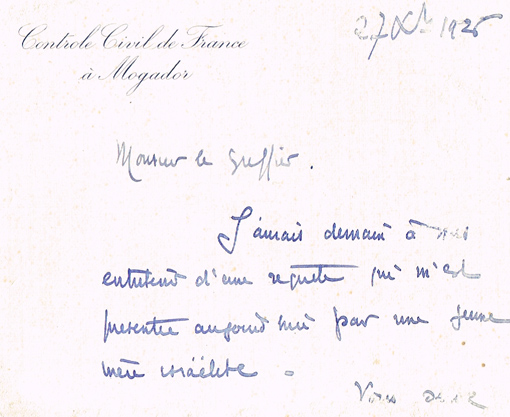 Contrôle Civil de France
à Mogador
27 Xbre 1925
Monsieur le Greffier.
J'aurais demain à
entretenir d'une requête qui m'est
présentée aujourd'hui par une jeune
mère israélite.
Vous